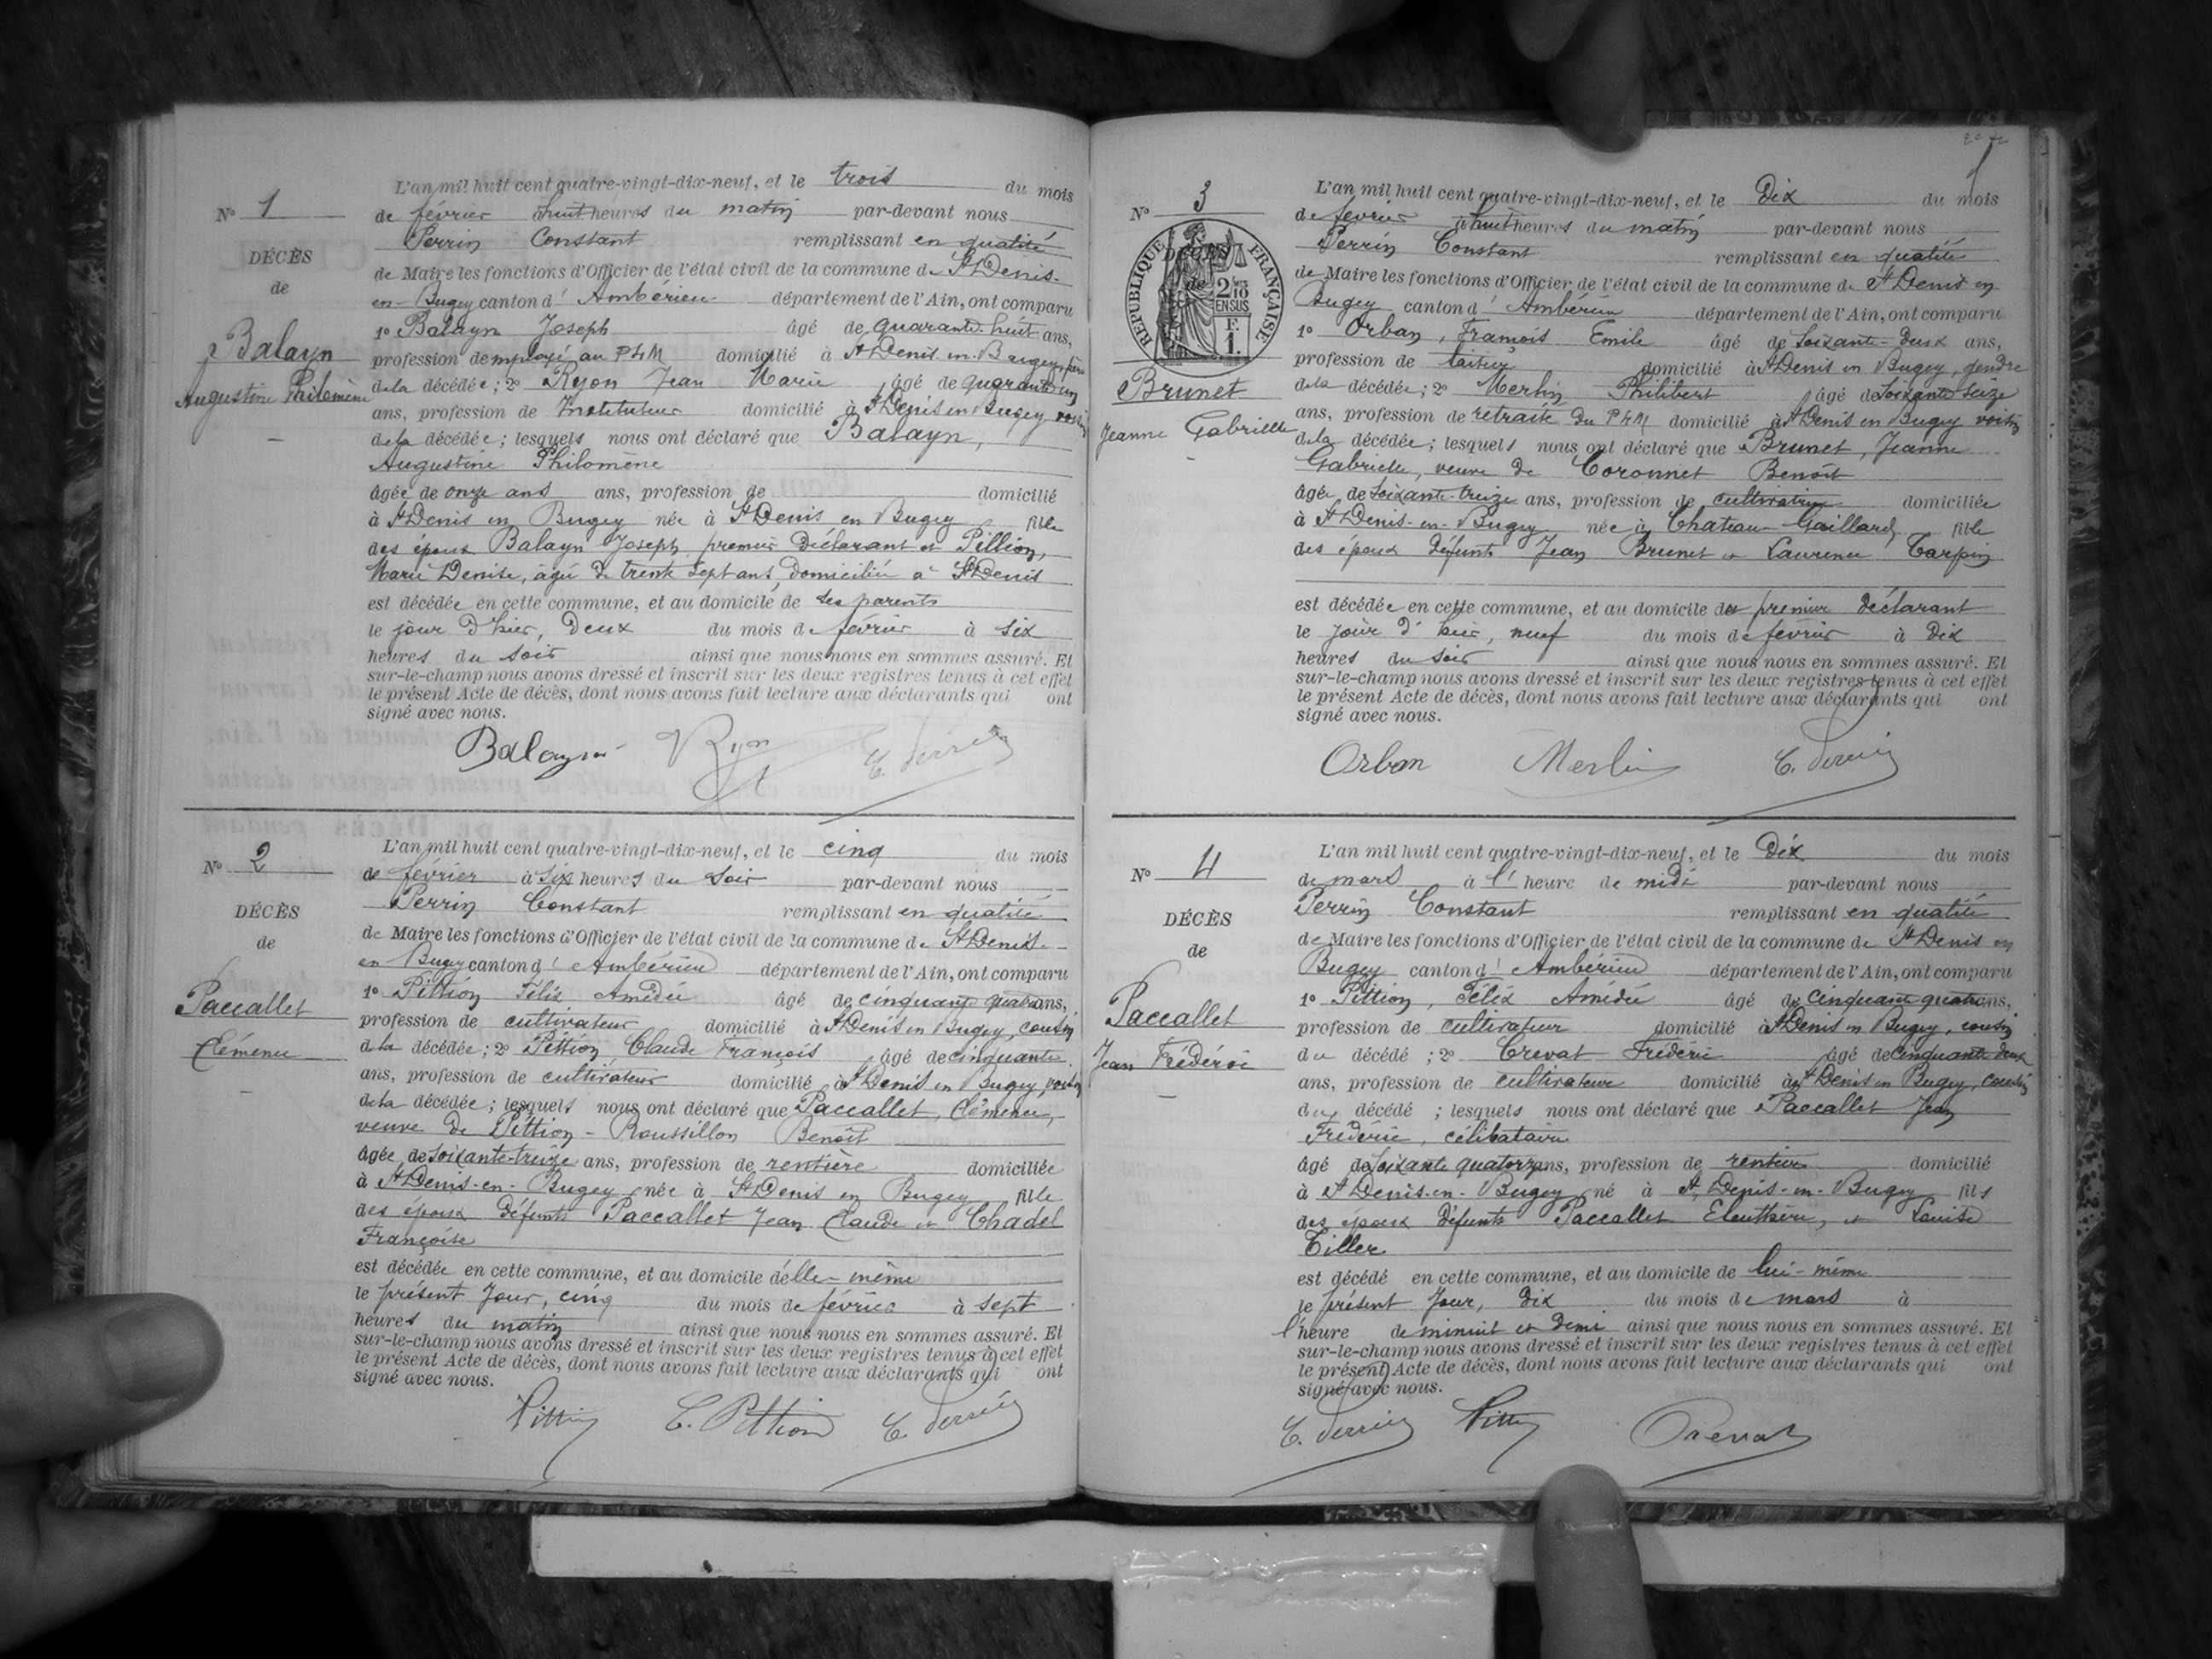 N° 1
DÉCÈS
de
Balayn
Augustine Philomène
L'an mil huit cent quatre-vingt-dix-neuf, et le trois du mois
de février à huit heures du matin par-devant nous
Perrin Constant remplissant en qualité
de Maire les fonctions d'Officier de l'état civil de la commune de St Denis-
en-Bugey canton d' Ambérieu département de l'Ain, ont comparu
1° Balayn Joseph âgé de quarante-huit ans,
profession d'employé au PLM domicilié à St Denis en Bugey, père
de la décédée; 2° Ryon Jean Marie âgé de quarante
ans, profession de Instituteur domicilié à St Denis en Bugey voisin
de la décédée; lesquels nous ont déclaré que Balayn,
Augustine Philomène
âgée de onze ans ans, profession de domicilié
à St Denis en Bugey née à St Denis en Bugey fille
des époux Balayn Joseph premier déclarant et Pillion,
Marie Denise, âgée de trente sept ans, domiciliée à St Denis
est décédée en cette commune, et au domicile de ses parents
le jour d'hier, deux du mois de février à six
heures du soir ainsi que nous nous en sommes assuré. Et
sur-le-champ nous avons dressé et inscrit sur les deux registres tenus à cet effet
le présent Acte de décès, dont nous avons fait lecture aux déclarants qui ont
signé avec nous.
Balayn Ryon C. Perrin
N° 2
DÉCÈS
de
Paccallet
Clémence
L'an mil huit cent quatre-vingt-dix-neuf, et le cinq du mois
de février à six heures du soir par-devant nous
Perrin Constant remplissant en qualité
de Maire les fonctions d'Officier de l'état civil de la commune de St Denis-
en Bugey canton d' Ambérieu département de l'Ain, ont comparu
1° Pittion Félix Amédée âgé de cinquante quatre ans,
profession de cultivateur domicilié à St Denis en Bugey, cousin
de la décédée; 2° Pittion Claude François âgé de cinquante
ans, profession de cultivateur domicilié à St Denis en Bugey, voisin
de la décédée; lesquels nous ont déclaré que Paccallet, Clémence,
veuve de Pittion-Roussillon Benoît
âgée de soixante-treize ans, profession de rentière domiciliée
à St Denis-en-Bugey née à St Denis en Bugey fille
des époux défunts Paccallet Jean Claude et Chadel
Françoise
est décédée en cette commune, et au domicile d'elle-même
le présent jour, cinq du mois de février à sept
heures du matin ainsi que nous nous en sommes assuré. Et
sur-le-champ nous avons dressé et inscrit sur les deux registres tenus à cet effet
le présent Acte de décès, dont nous avons fait lecture aux déclarants qui ont
signé avec nous.
Pittion C. Pittion C. Perrin
N° 3
DÉCÈS
de
REPUBLIQUE FRANÇAISE
2/10
EN SUS
F.
1.
Brunet
Jeanne Gabrielle
L'an mil huit cent quatre-vingt-dix-neuf, et le Dix du mois
de février à huit heures du matin par-devant nous
Perrin Constant remplissant en qualité
de Maire les fonctions d'Officier de l'état civil de la commune de St Denis en
Bugey canton d' Ambérieu département de l'Ain, ont comparu
1° Orban, François Emile âgé de soixante-deux ans,
profession de domicilié à St Denis en Bugey, gendre
de la décédée; 2° Merlin Philibert âgé de soixante seize
ans, profession de retraité du PLM domicilié à St Denis en Bugey voisin
de la décédée; lesquels nous ont déclaré que Brunet, Jeanne
Gabrielle, veuve de Coronnet Benoît
âgée de soixante-treize ans, profession de cultivatrice domiciliée
à St Denis-en-Bugey née à Chateau-Gaillard fille
des époux défunts Jean Brunet et Laurence Carpin
est décédée en cette commune, et au domicile du premier déclarant
le jour d'hier, neuf du mois de février à dix
heures du soir ainsi que nous nous en sommes assuré. Et
sur-le-champ nous avons dressé et inscrit sur les deux registres tenus à cet effet
le présent Acte de décès, dont nous avons fait lecture aux déclarants qui ont
signé avec nous.
Orban Merlin C. Perrin
N° 4
DÉCÈS
de
Paccallet
Jean Frédéric
L'an mil huit cent quatre-vingt-dix-neuf, et le Dix du mois
de mars à l' heure de midi par-devant nous
Perrin Constant remplissant en qualité
de Maire les fonctions d'Officier de l'état civil de la commune de St Denis en
Bugey canton d' Ambérieu département de l'Ain, ont comparu
1° Pittion, Félix Amédée âgé de cinquante quatre ans,
profession de cultivateur domicilié à St Denis en Bugey, cousin
du décédé; 2° Crevat Frédéric âgé de cinquante deux
ans, profession de cultivateur domicilié à St Denis en Bugey, cousin
du décédé; lesquels nous ont déclaré que Paccallet Jean
Frédéric, célibataire
âgé de soixante quatorze ans, profession de rentier domicilié
à St Denis-en-Bugey né à St Denis-en-Bugey fils
des époux défunts Paccallet Eleuthère, et Louise
Tiller
est décédé en cette commune, et au domicile de lui-même
le présent jour, dix du mois de mars à
l'heure de minuit et demi ainsi que nous nous en sommes assuré. Et
sur-le-champ nous avons dressé et inscrit sur les deux registres tenus à cet effet
le présent Acte de décès, dont nous avons fait lecture aux déclarants qui ont
signé avec nous.
C. Perrin Pittion Crevat